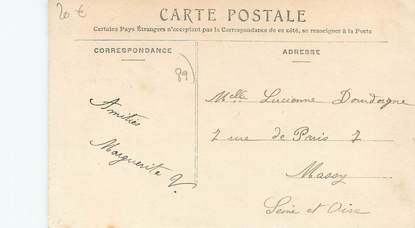 20 €
CARTE POSTALE
Certains Pays Étrangers n'acceptent pas la Correspondance de ce côté, se renseigner à la Poste
CORRESPONDANCE
ADRESSE
89
Amitiés
Marguerite V.
Melle Lucienne Dourdoigne
7 rue de Paris 7
Massy
Seine et Oise